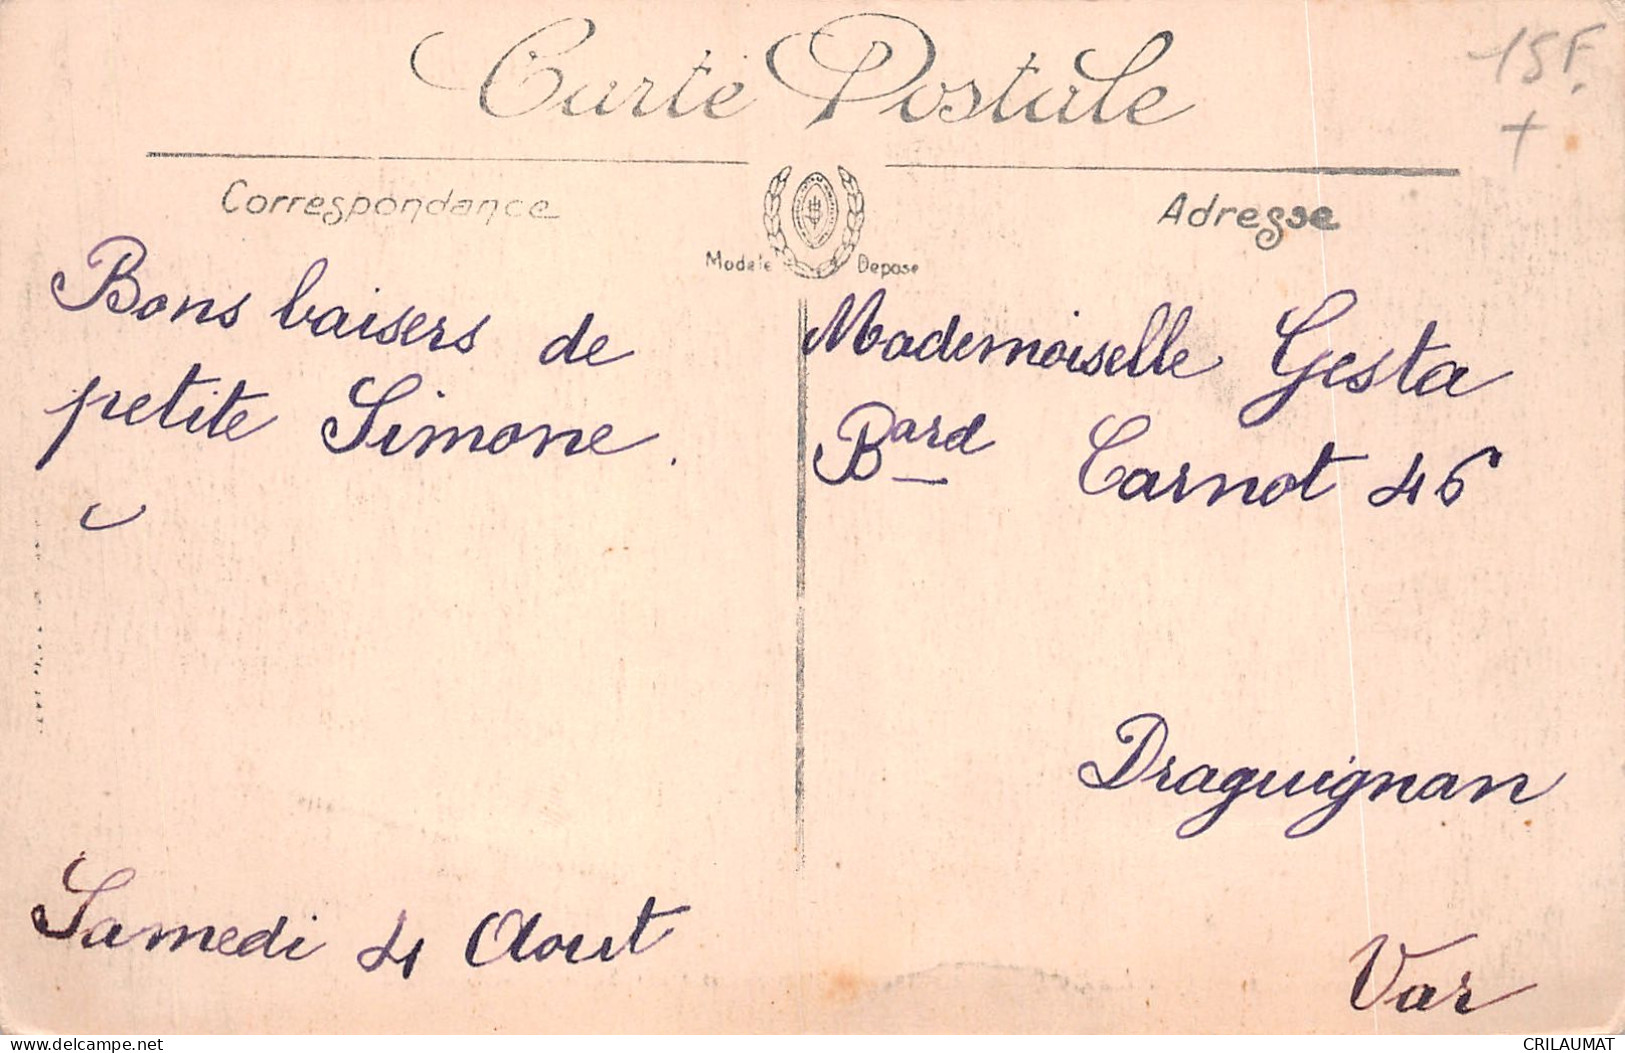 Carte Postale
15F.
+
Correspondance
Adresse
Modele Depose
Bons baisers de
petite Simone.
Samedi 4 Aout
Mademoiselle Gesta
Bard Carnot 46
Draguignan
Var
CRILAUMAT